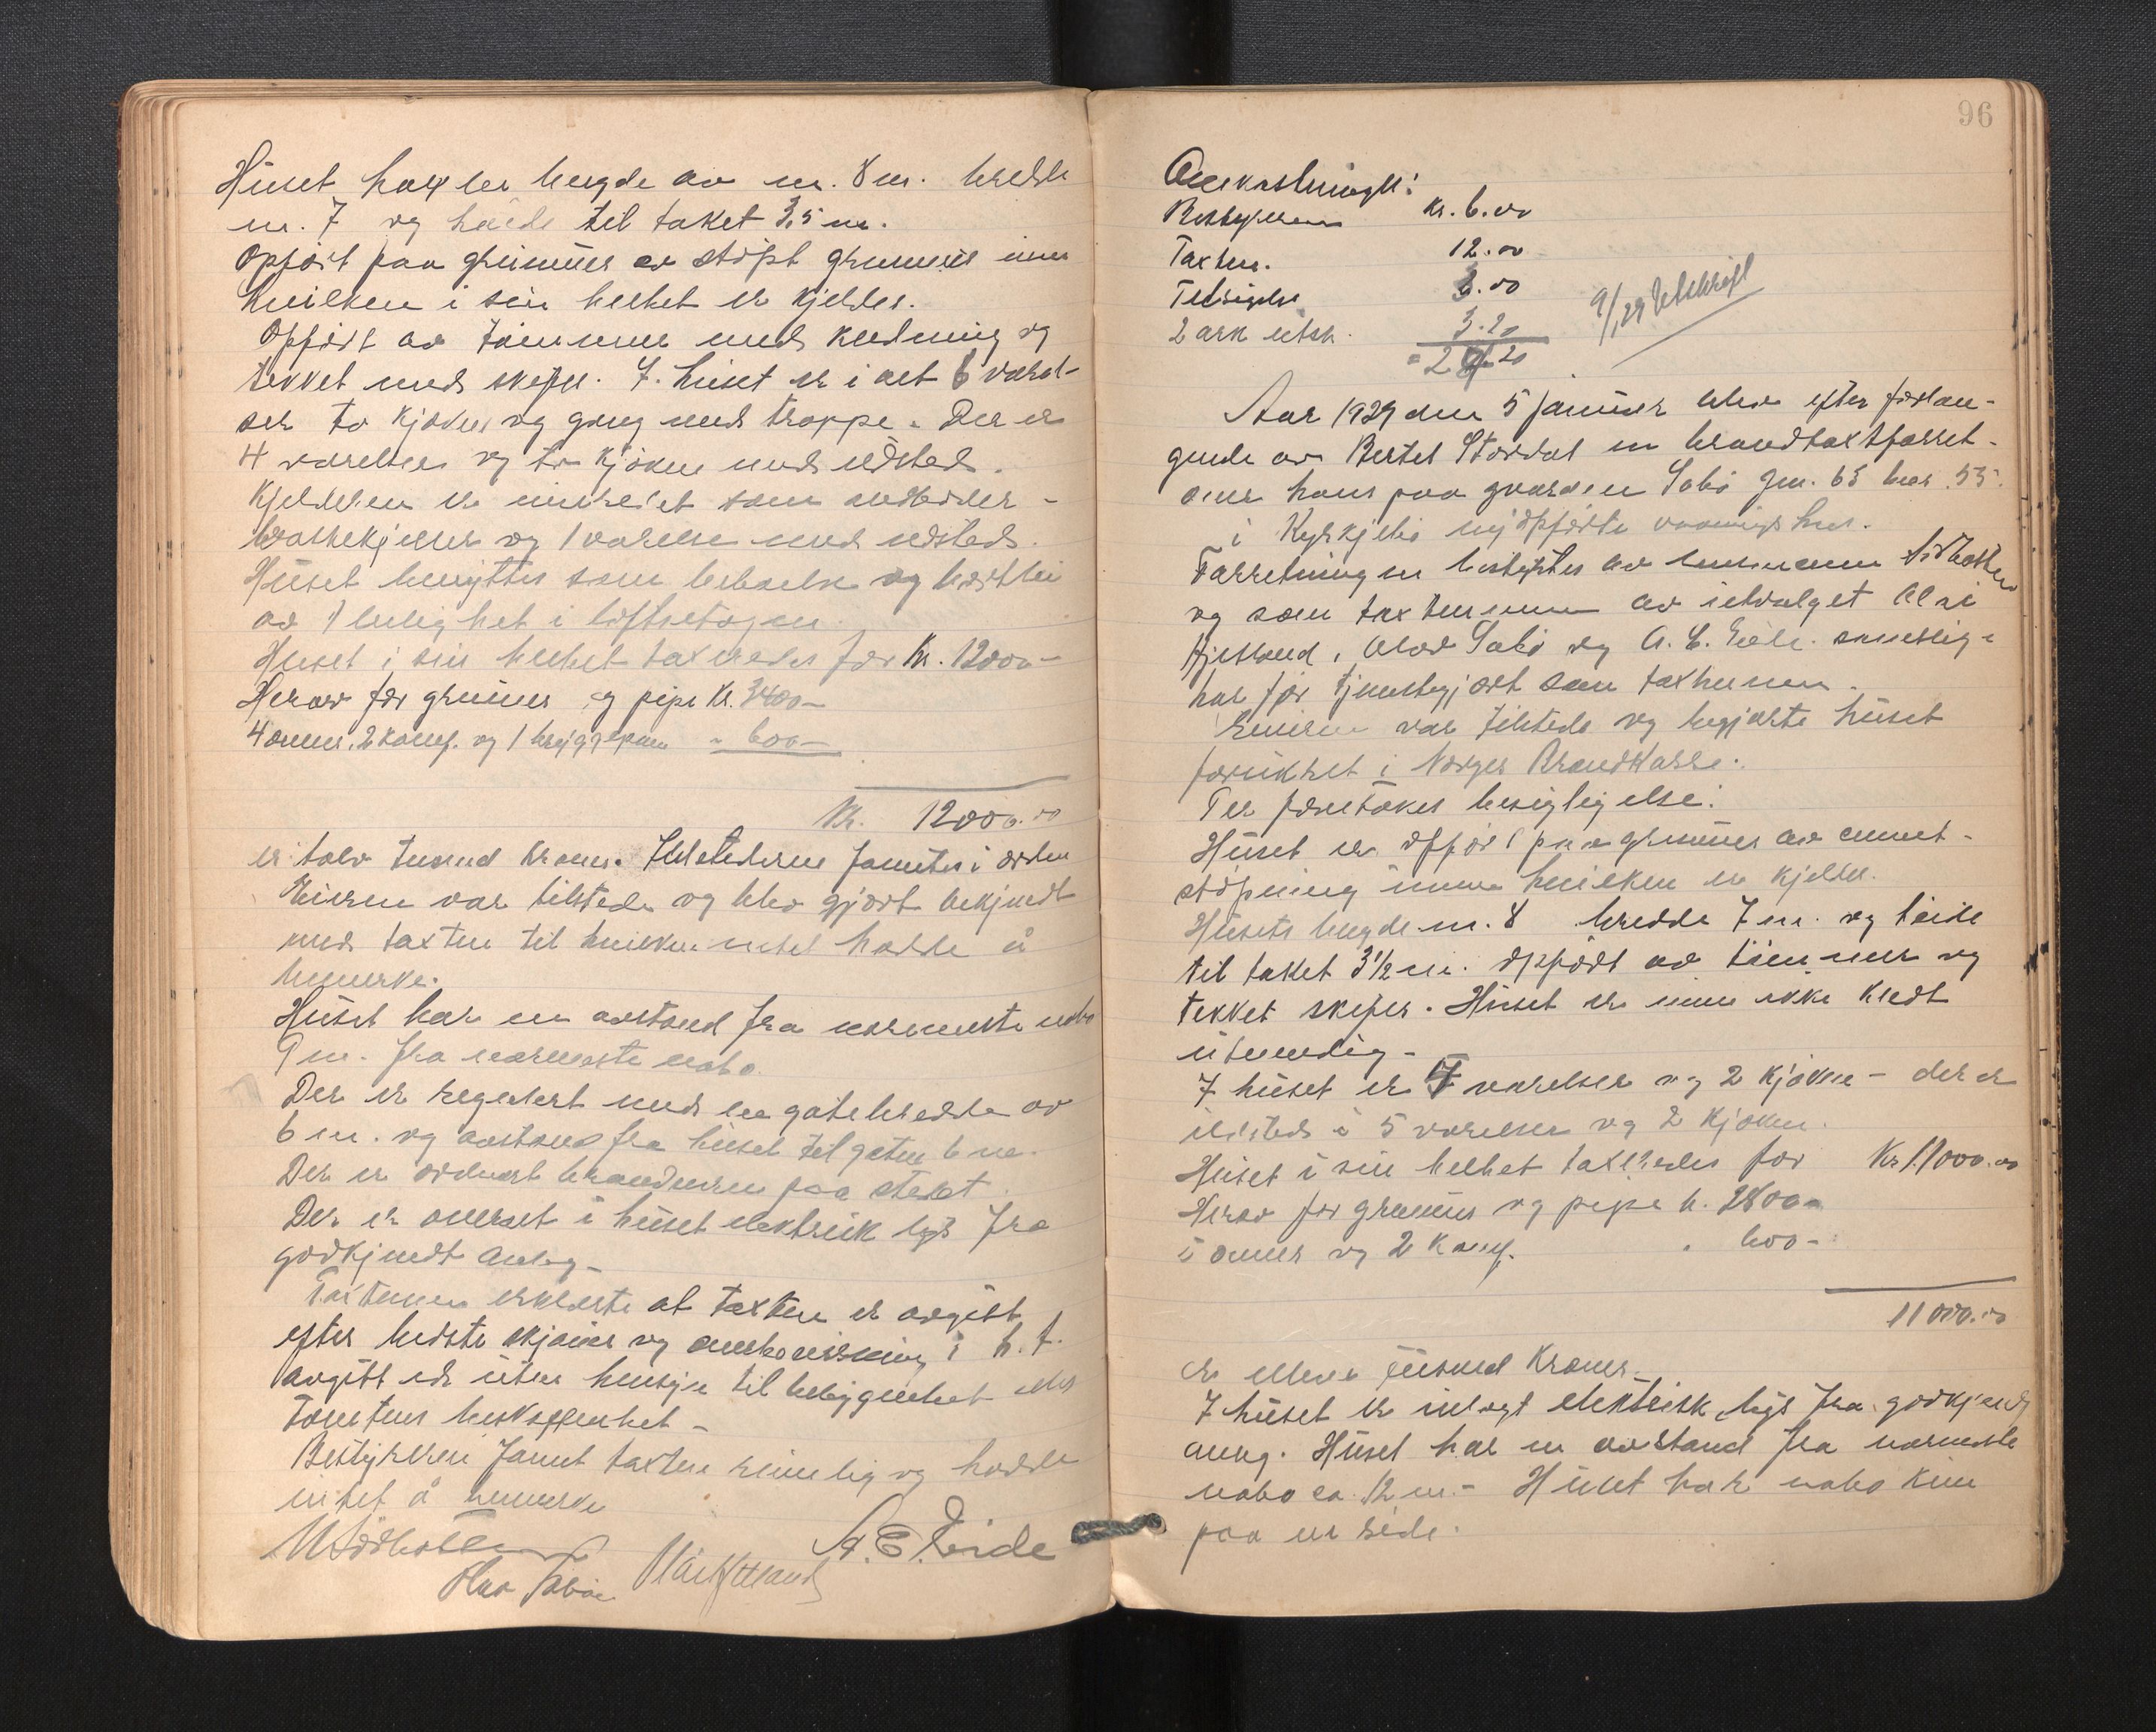 Huset har en lengde av m. 8 m. bredde
m. 7 og høide til taket 3,5 m.
Opført paa grunmur av støpt grunmur innen
hvilken i sin helhet er kjelder.
Opført av tømmer med kledning og
tekket med skifer. I huset er i alt 6 værel-
ser to kjøken og gang med trappe. Der er
4 værelser og to kjøken med ildsted.
Kjelderen er inredet som
vaskekjelder og 1 værelse med ildsted.
Huset benyttes som beboelse og
av 1 leilighet i loftsetagen.
Huset i sin helhet taxeredes for Kr. 12000-
Herav for grunmur og pipe Kr. 3400-
4 ovner, 2 komf. og 1 bryggepan " 600-
Kr. 12000.00
er tolv tusend kroner. Ildstederne fantes i orden
Eieren var tilstede og blev gjort bekjendt
med taxten til hvilken intet hadde å
bemerke.
Huset har en avstand fra nærmeste nabo
9 m. fra nærmeste nabo.
Der er regulert med en gatebredde av
6 m. og avstand fra huset til gaten 6 m.
Der er ordnert brandvern paa stedet.
Der er overalt i huset elektrisk lys fra
godkjendt anleg-
Taxtmen erklærte at taxten er avgitt
efter bedste skjøn og overbevisning i h. t.
avgitt ed uten hensyn til bebyggenhet eller
tomtens beskaffenhet-
Bestyreren fant taxten rimelig og hadde
intet å bemerke
Olav Sabø A. E. Eide
96
Omkostninger:
Bestyreren Kr. 6.00
Taxtm. 12.00
Tilsigelse 3.00
2 ark utsk. 3.20
= 24.20
9/1 29 Utskrift
Aar 1929 den 5 januar blev efter forlan-
gende av Bertel Stordal en brandtaxtforret-
over hans paa gaarden Sabø gnr. 65 bnr. 55
i Kyrkjebø nyopførte vaaningshus.
Forretningen bestyrtes av lensmann Nordbotten
og som taxtmenn av utvalget Olai
Hjetland, Olav Sabø og A. E. Eide. samtlige
har før tjenestegjort som taxtmenn.
Eieren var tilstede og begjærte huset
forsikret i Norges Brandkasse.
Til foretakes besigtigelse:
Huset er opført paa grunmur av cement-
støpning innen hvilken er kjelder.
Husets lengde m. 8 bredde 7 m. og høide
til taket 3½ m. opført av tømmer og
tekket skifer. Huset er enn ikke kledt
utvendig-
I huset er 7 værelser og 2 kjøken - der er
ildsted i 5 værelser og 2 kjøken.
Huset i sin helhet taxeredes for Kr. 11000.00
Herav for grunmur og pipe k. 2800-
5 ovner og 2 komf. " 600-
11000.00
er elleve tusend Kroner.
I huset er inlagt elektrisk lys fra godkjendt
anleg. Huset har en avstand fra nærmeste
nabo ca. 12 m. - Huset har nabo kun
paa en side.